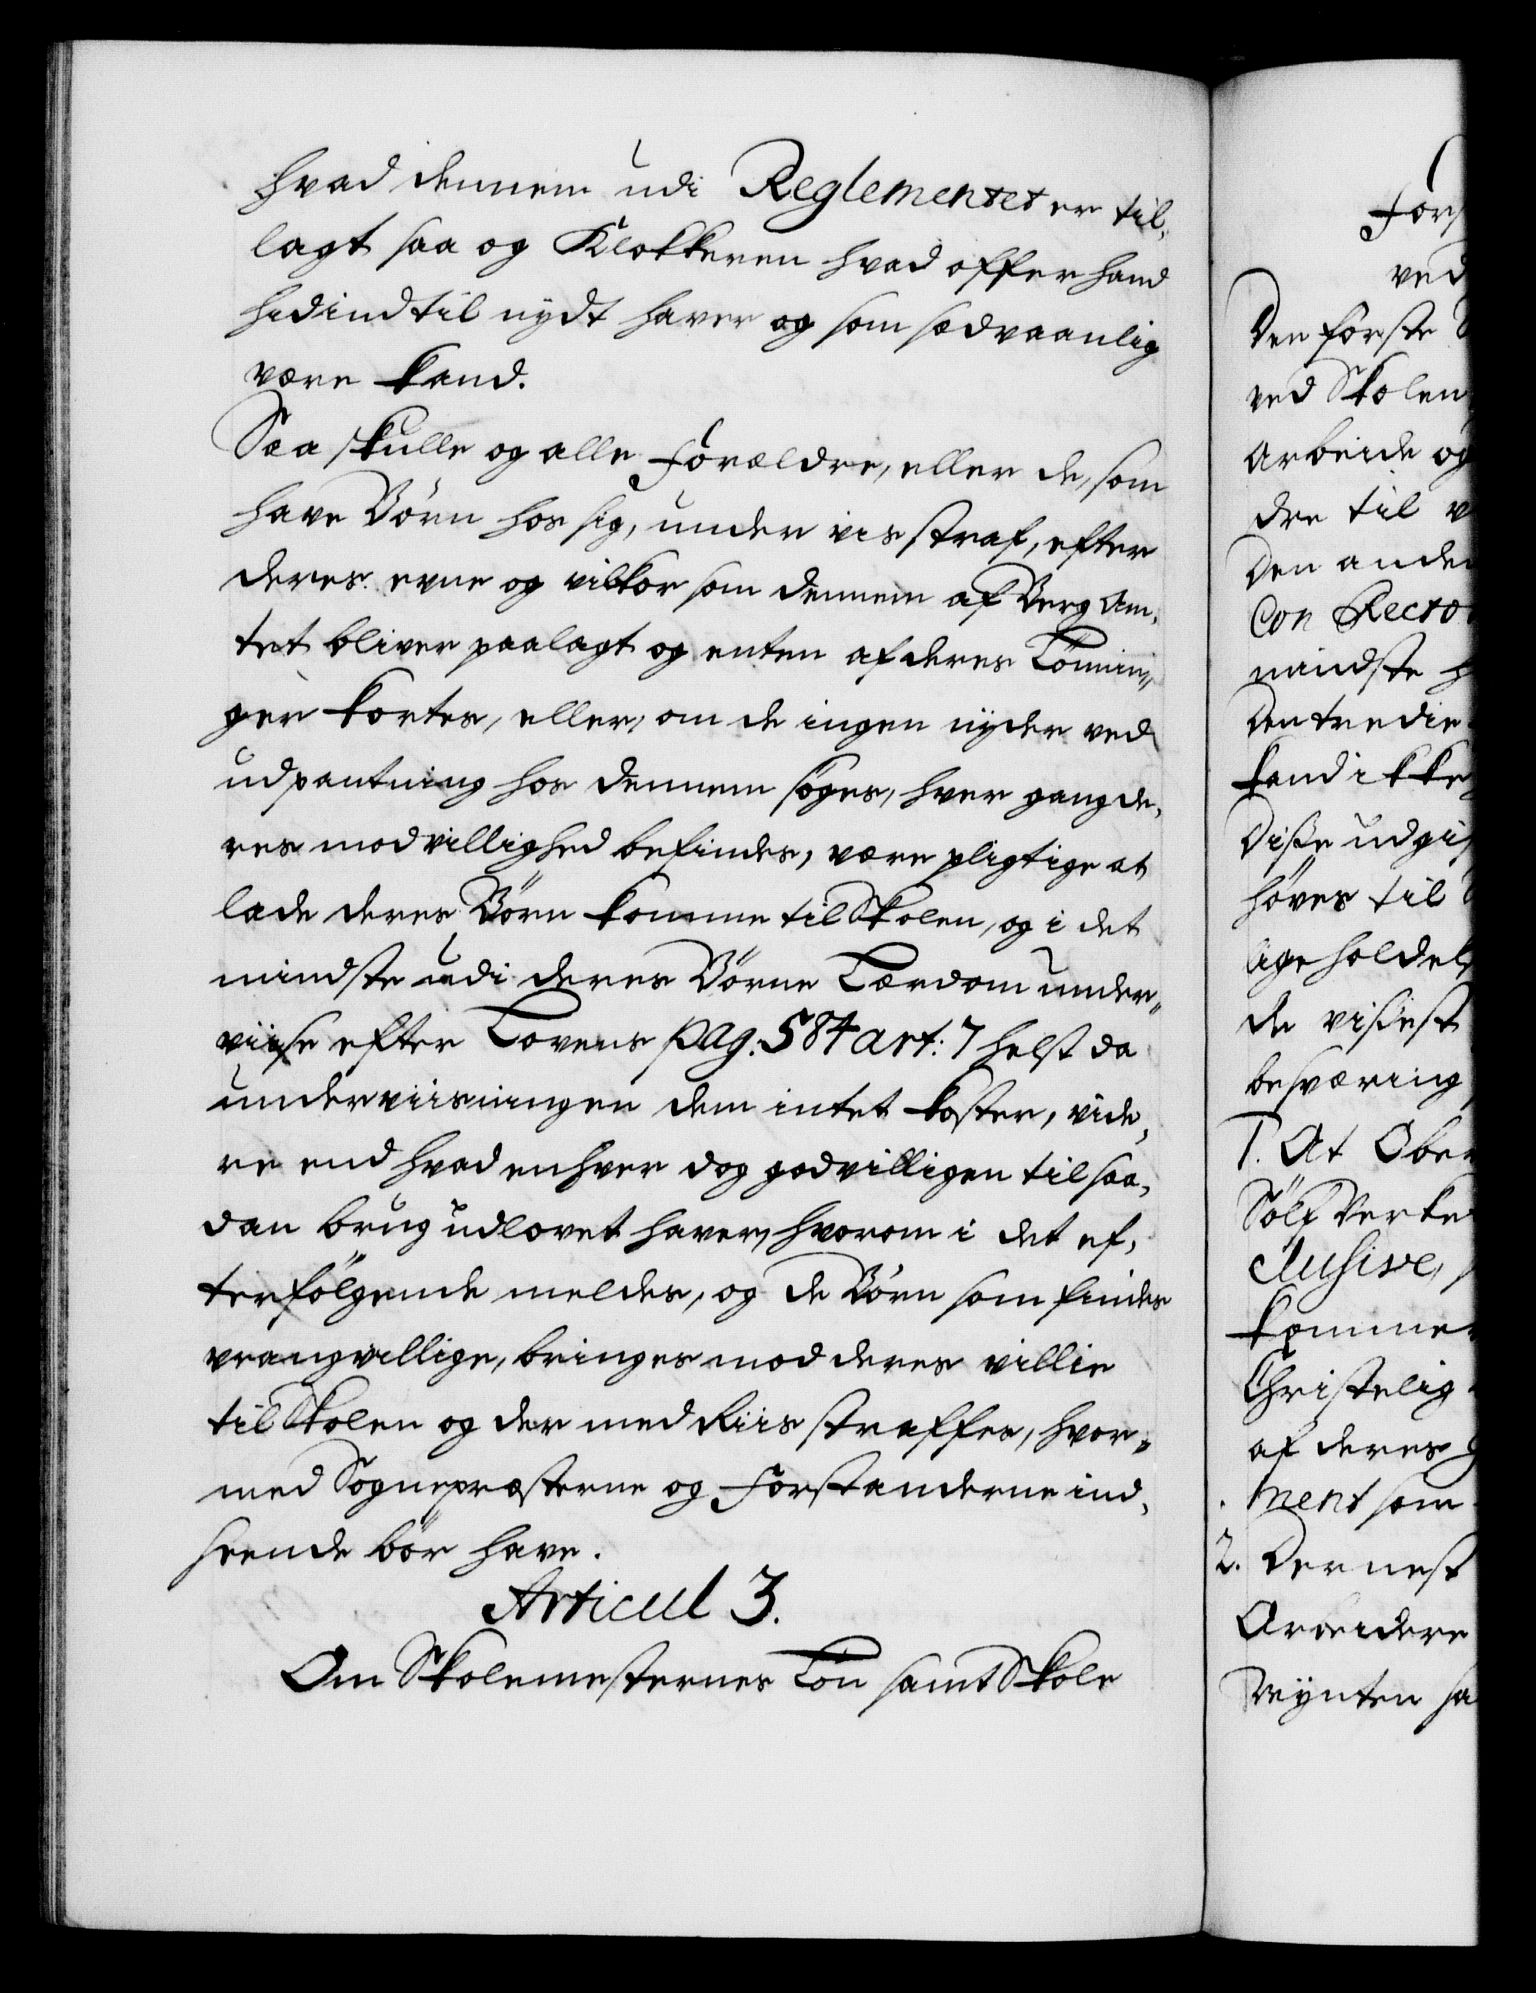 hvad dennem udi Reglementet er til-
lagt saa og Klokkeren hvad offer hand
hidindtil nydt haver og som sædvaanlig
være kand.
Saa skulle og alle Forældre, eller de, som
have Börn hos sig, under vis straf, efter
deres evne og vilkor som dennem af Berg Am-
tet bliver paalagt og enten af deres Lönnin-
ger kortes, eller, om de ingen nyder ved
udpantning hos dennem söges, hver gang de-
res modvillighed befindes, være pligtige at
lade deres Börn komme til Skolen, og i det
mindste udi deres Börne Lærdom under-
viise efter Lovens pag: 584 art: 7 helst da
underviisningen dem intet koster, vide-
re end hvad enhver dog godvilligen til saa-
dan brug udlovet haver, hvorom i det ef-
terfölgende meldes, og de Börn som findes
vrangvillige, bringes mod deres villie
til Skolen og der med Riis straffes, hvor-
med Sognepræsterne og Forstanderne ind-
seende bör have.
Articul 3.
Om Skolemesternes Lön samt Skole
Fors
ved
Den förste
ved Skolen
Arbeide og
dre til
Den anden
Con Recto
mindste
Den tredie
kand ikke
Disse udgif
höves til
lige holdel
de visest
besværing
1. At Ober
Sölf Verke
clusive,
kommer
Christelig
af deres
ment som
2. Dernest
Arbeidere
Mynten sa